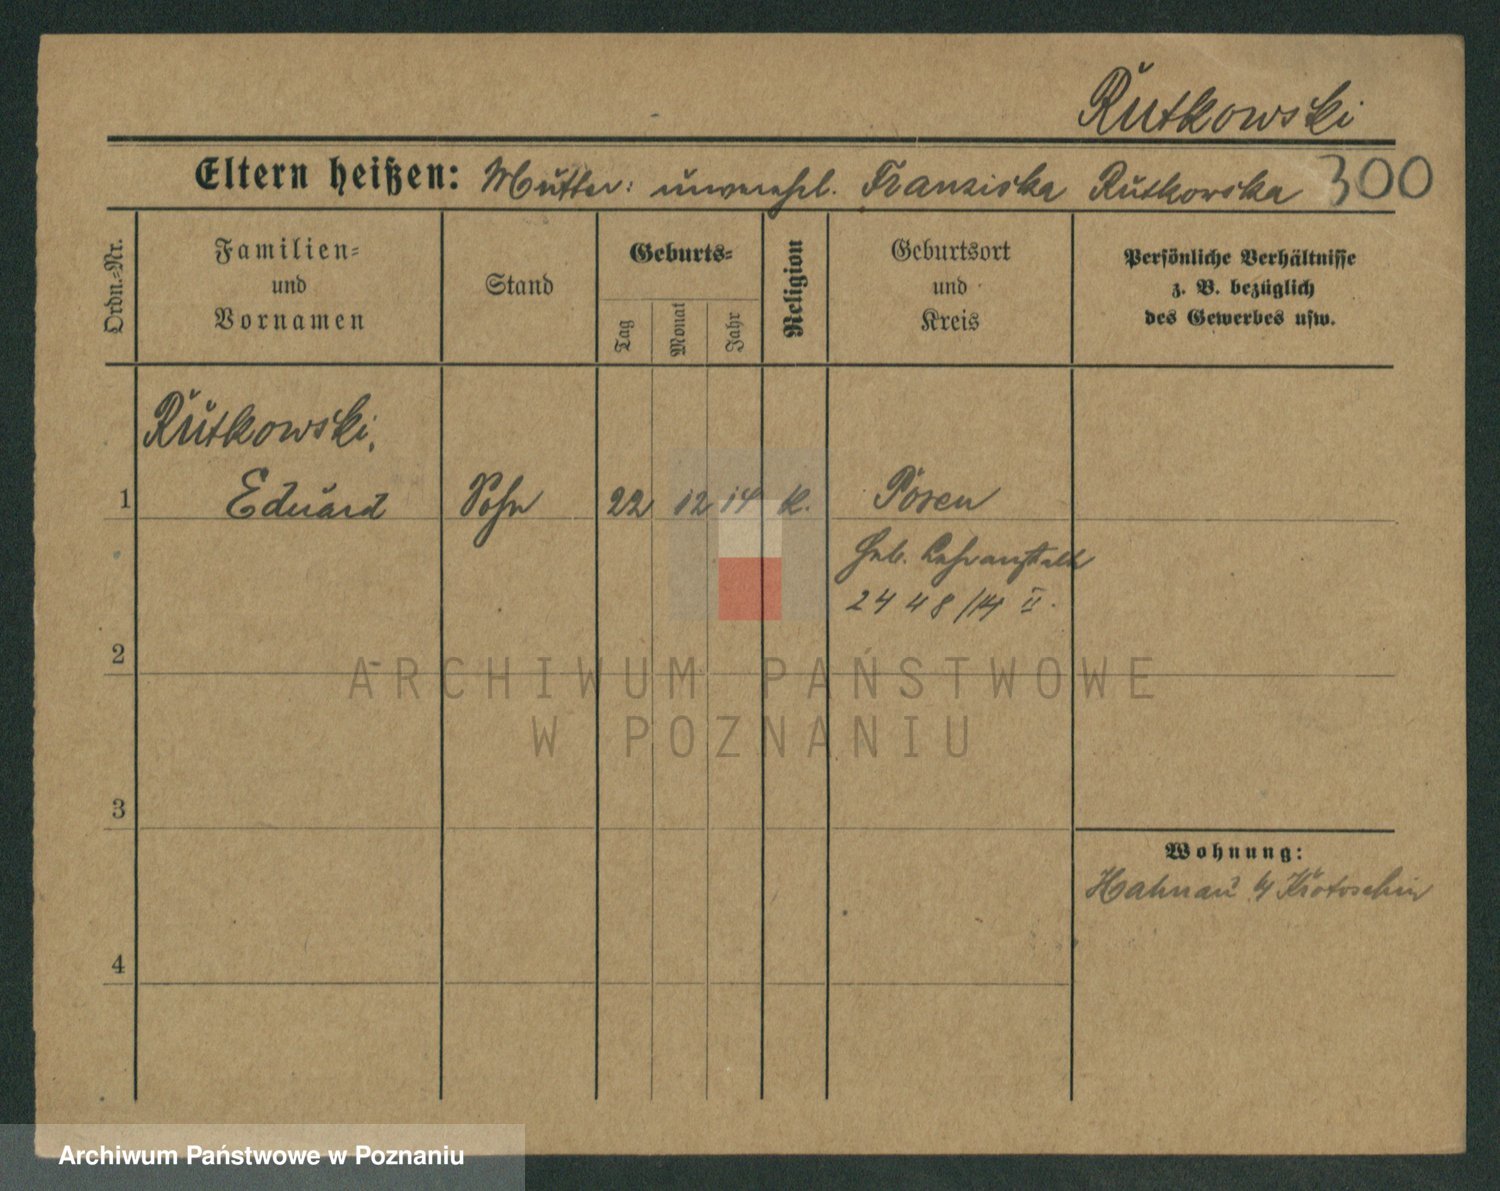 Rutkowski
Eltern heißen: Mutter: unverehl. Franziska Rutkowska 300
Ordn.-Nr.
Familien-
und
Vornamen
Stand
Geburts-
Tag
Monat
Jahr
Religion
Geburtsort
und
Kreis
Persönliche Verhältnisse
z. B. bezüglich
des Gewerbes usw.
Rutkowski,
1 Eduard Sohn 22 12 14 k. Posen
Heb. Lehranstalt
2448/14 II.
2
ARCHIWUM PAŃSTWOWE
W POZNANIU
3
Wohnung:
Hahnau b/ Krotoschin
4
Archiwum Państwowe w Poznaniu